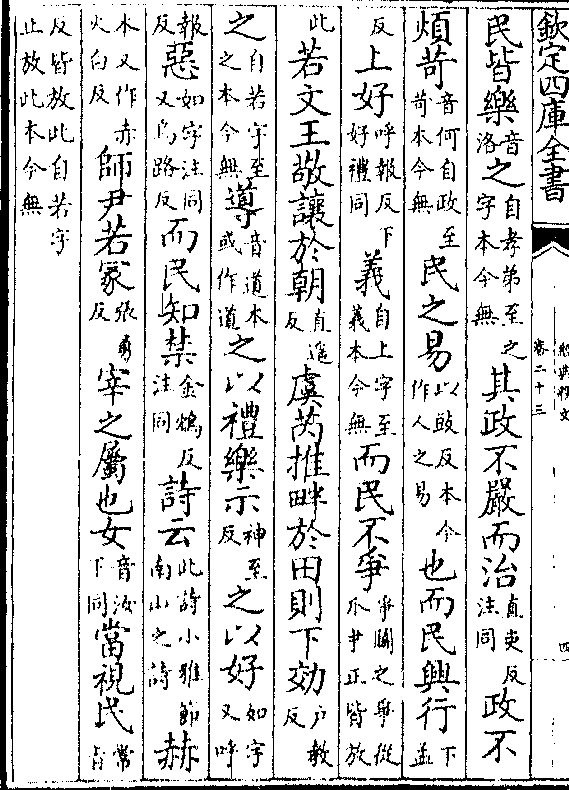 欽定四庫全書
經典釋文
卷二十三
四
民皆樂音洛之自孝弟至之字本今無其政不嚴而治直吏反注同政不
煩苛音何自政至苛本今無民之易以豉反本今作人之易也而民興行下孟
反上好呼報反下好禮同義自上字至義本今無而民不爭爭鬭之爭從爪尹正皆放
此若文王敬讓於朝直遥反虞芮推畔於田則下効户教反
之自若字至之本今無導音道本或作道之以禮樂示神至反之以好如字又呼
報反惡如字注同又烏路反而民知禁金鴆反注同詩云此詩小雅節南山之詩赫
本又作赤火白反師尹若冢張勇反宰之屬也女音汝下同當視民常旨
反皆放此自若字止放此本今無